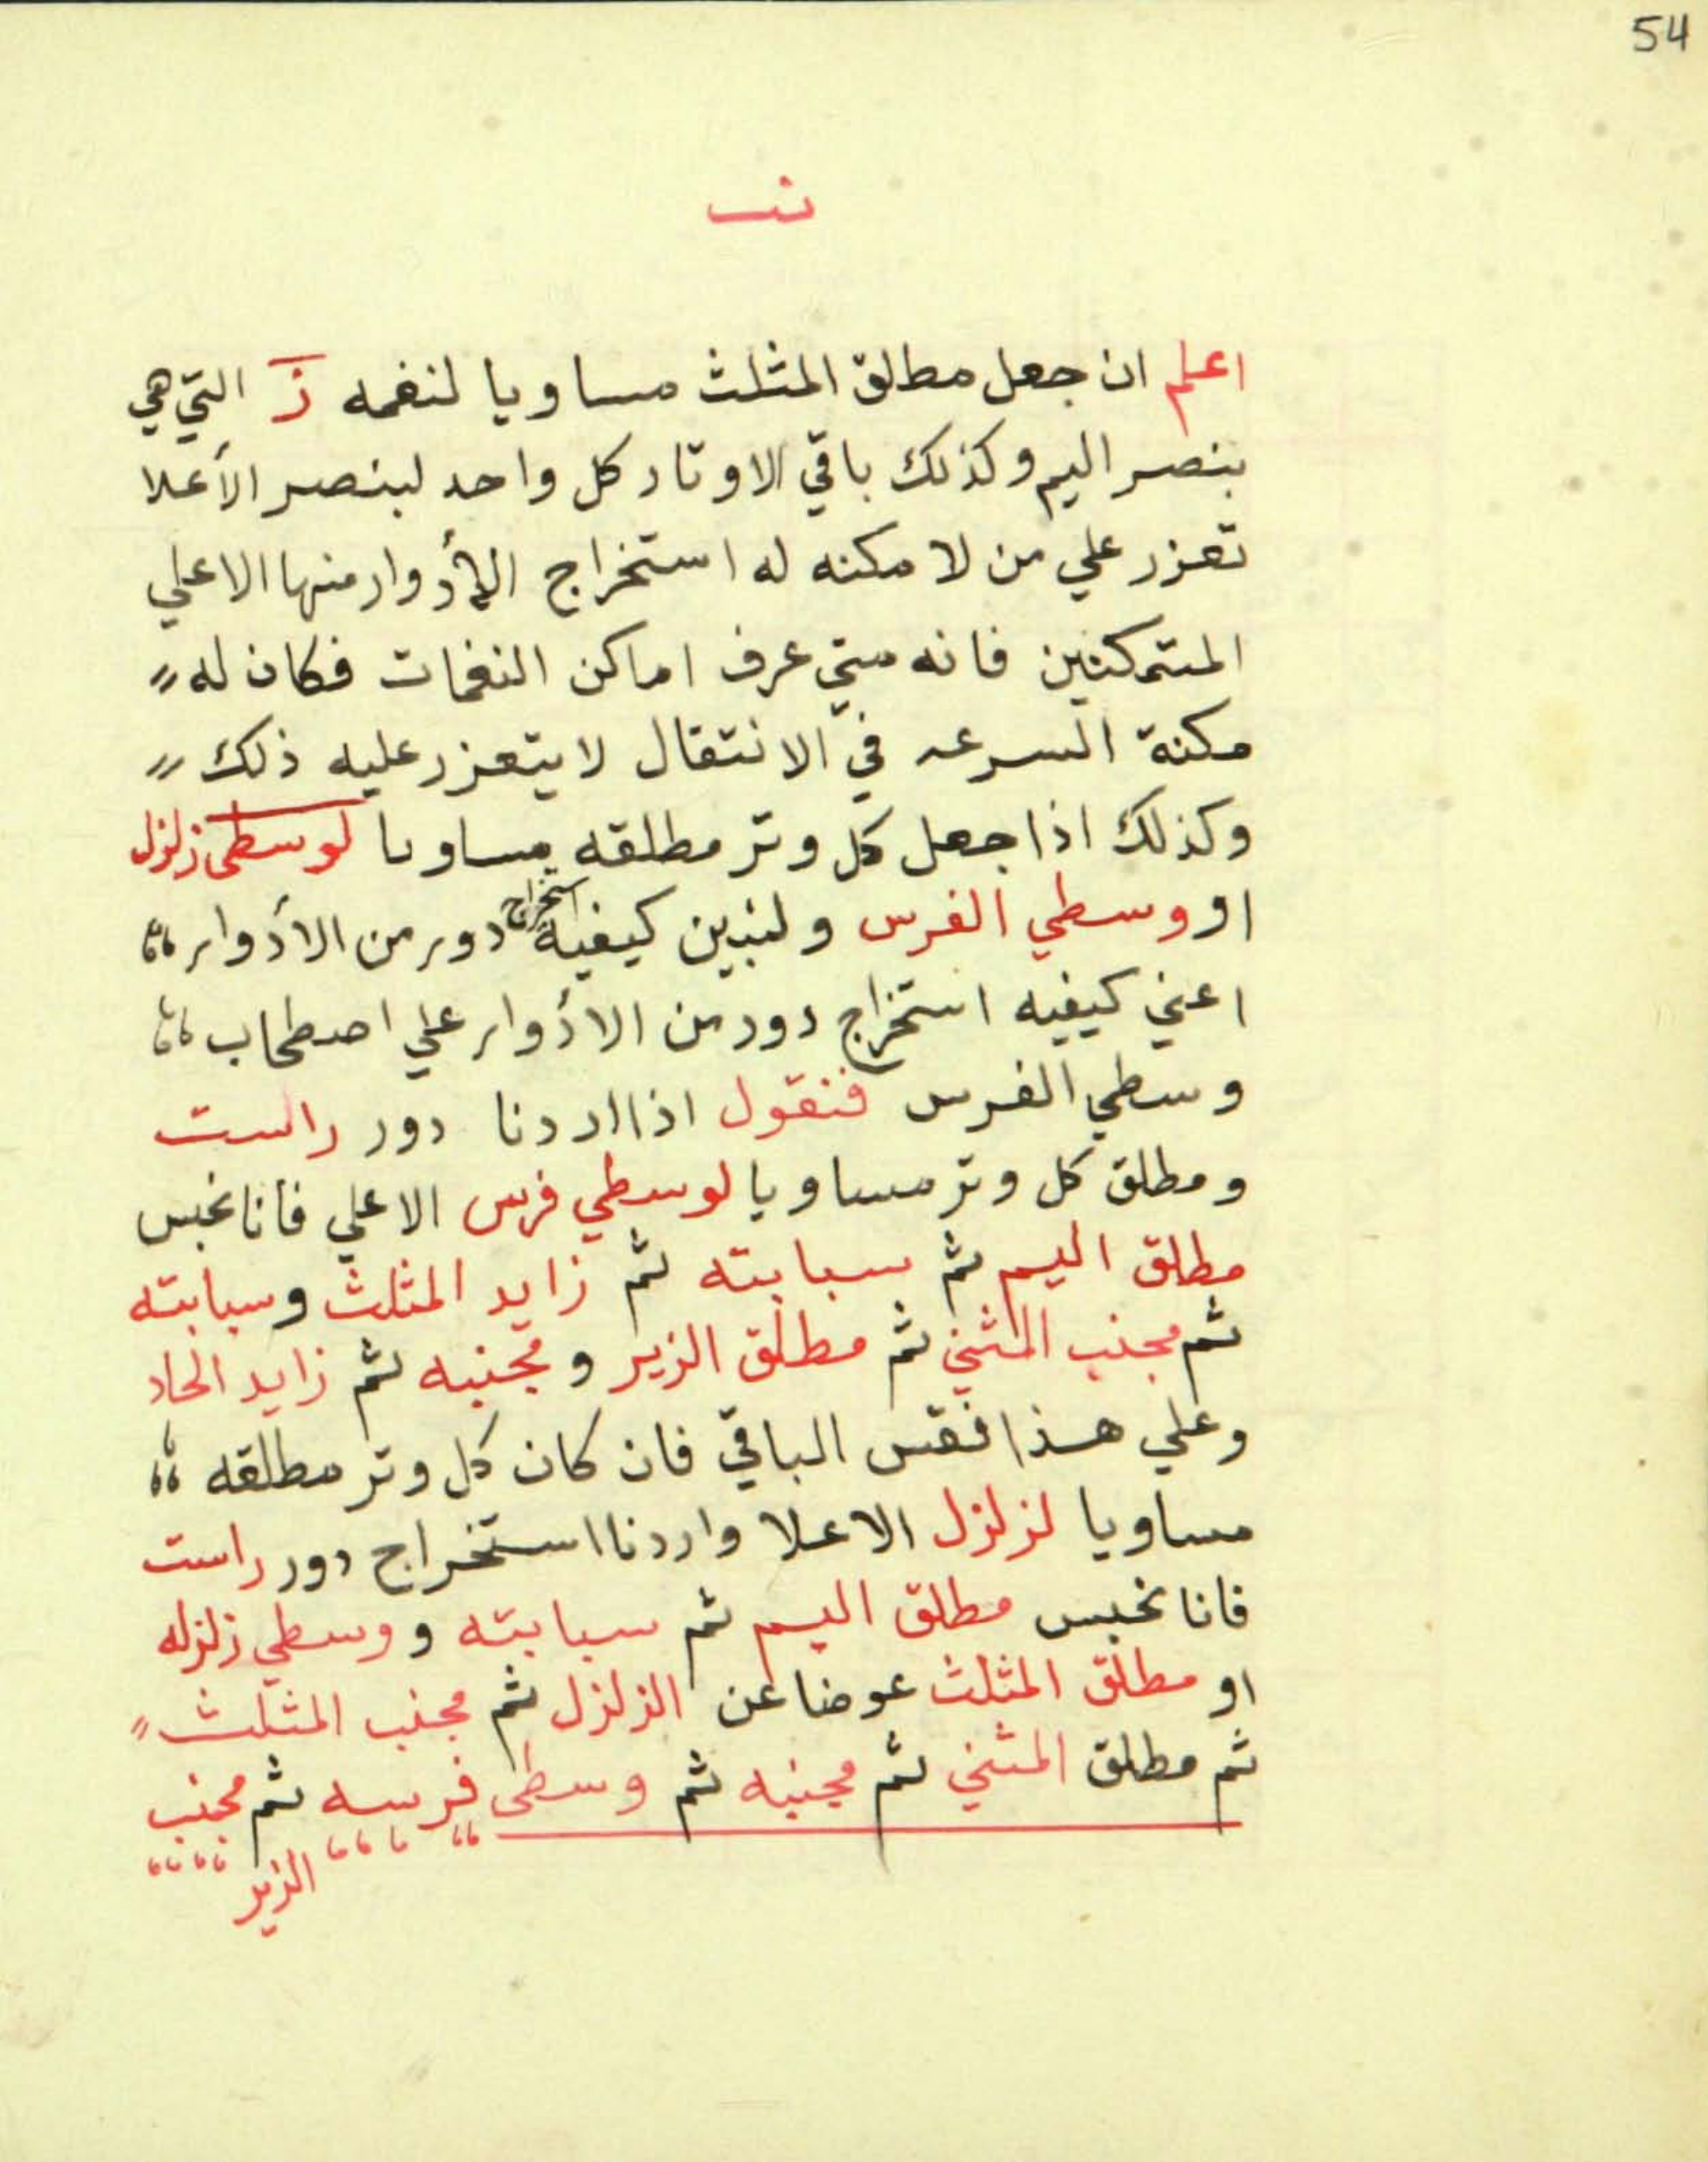 54
اعلم ان جعل مطلق المثلث مساويا لنغمه ز التي هي
بنصر اليم وكذلك باقي الاوتار كل واحد لبنصر الأعلا
تعزر علي من لا مكنه له استخراج الأدوار منها الا علي
المتمكنين فانه متي عرف اماكن النغمات فكان له
مكنة السرعه في الانتقال لا يتعزر عليه ذلك
وكذلك اذا جعل كل وتر مطلقه مساويا لوسطى زلزل
او وسطي الفرس ولنبين كيفية استخراج دور من الأدوار
اعني كيفيه استخراج دور من الأدوار علي اصطحاب
وسطي الفرس فنقول اذا اردنا دور راست
ومطلق كل وتر مساويا لوسطي فرس الاعلي فانا نحبس
مطلق اليم ثم سبابته ثم زايد المثلث وسبابته
ثم مجنب المثني ثم مطلق الزير ومجنبه ثم زايد الحاد
وعلي هذا فقس الباقي فان كان كل وتر مطلقه
مساويا لزلزل الاعلا واردنا استخراج دور راست
فانا نحبس مطلق اليم ثم سبابته ووسطي زلزله
او مطلق المثلث عوضا عن الزلزل ثم مجنب المثلث
ثم مطلق المثني ثم مجنبه ثم وسطى فرسه ثم مجنب
الزير